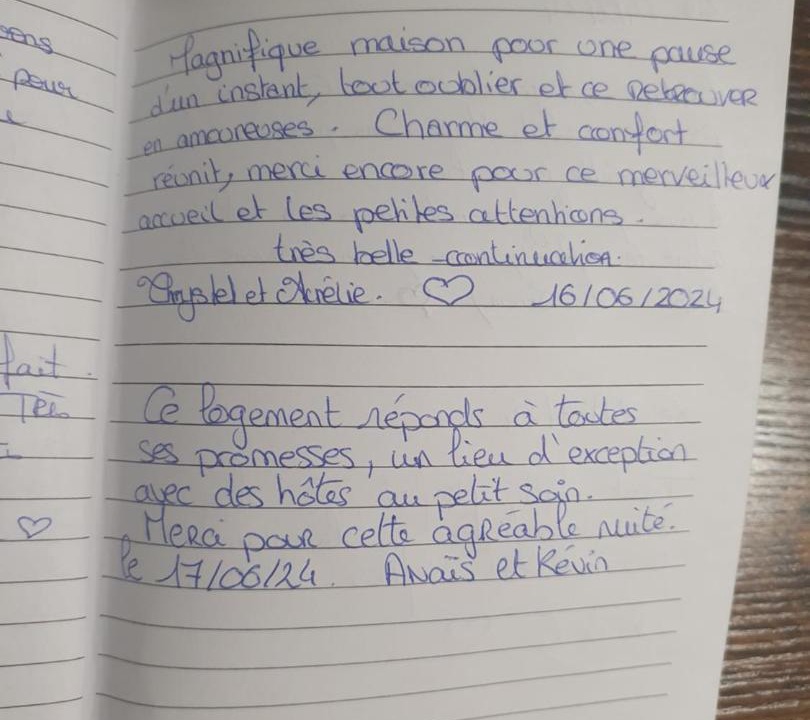 sens
pour
Magnifique maison pour une pause
d'un instant, tout oublier et ce retrouver
en amoureuses. Charme et confort
réunit, merci encore pour ce merveilleux
accueil et les petites attentions.
très belle continuation.
Chrystel et Aurélie. ♡ 16/06/2024
fait.
Ce logement réponds à toutes
ses promesses, un lieu d'exception
avec des hôtes au petit soin.
♡
Merci pour cette agréable nuité.
le 17/06/24. Anaïs et Kévin